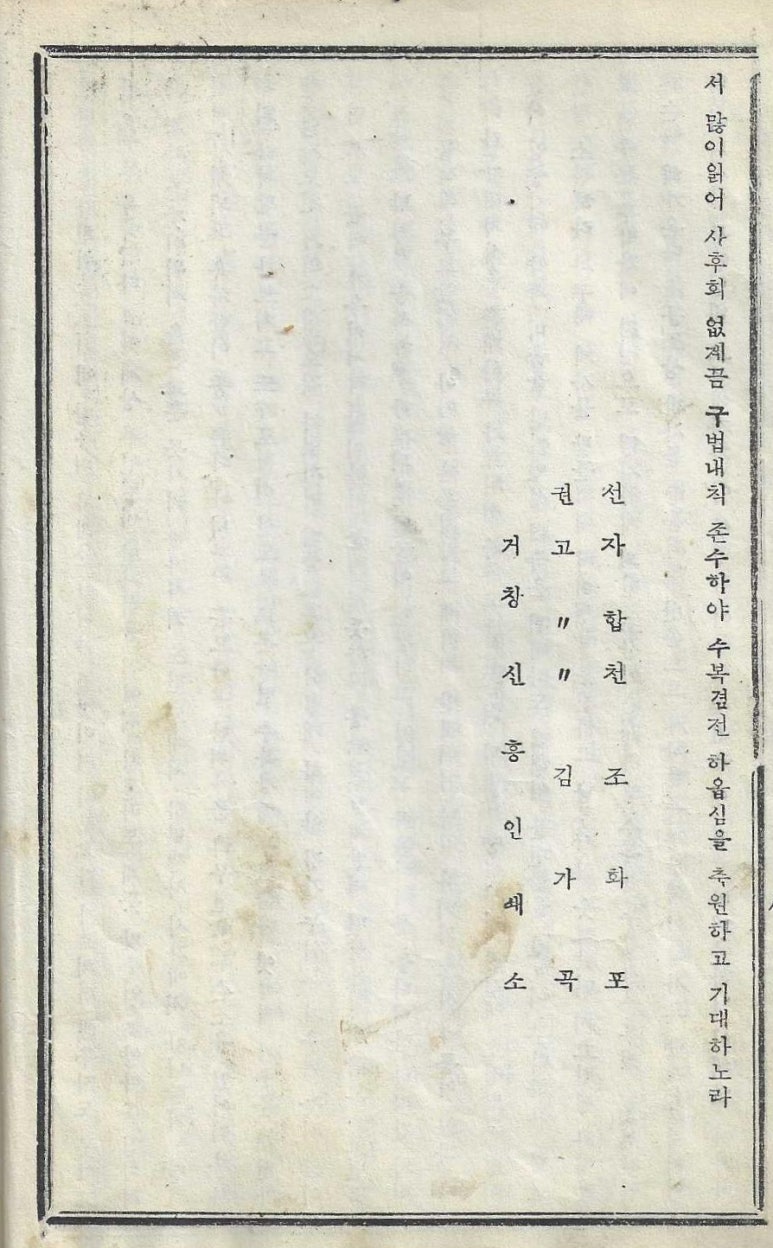 서 많이읽어 사후회 없게끔 구법내칙 존수하야 수복겸전 하옵심을 축원하고 기대하노라
선자 합천 조화포
권고 〃〃 김가곡
거창 신흥인쇄소